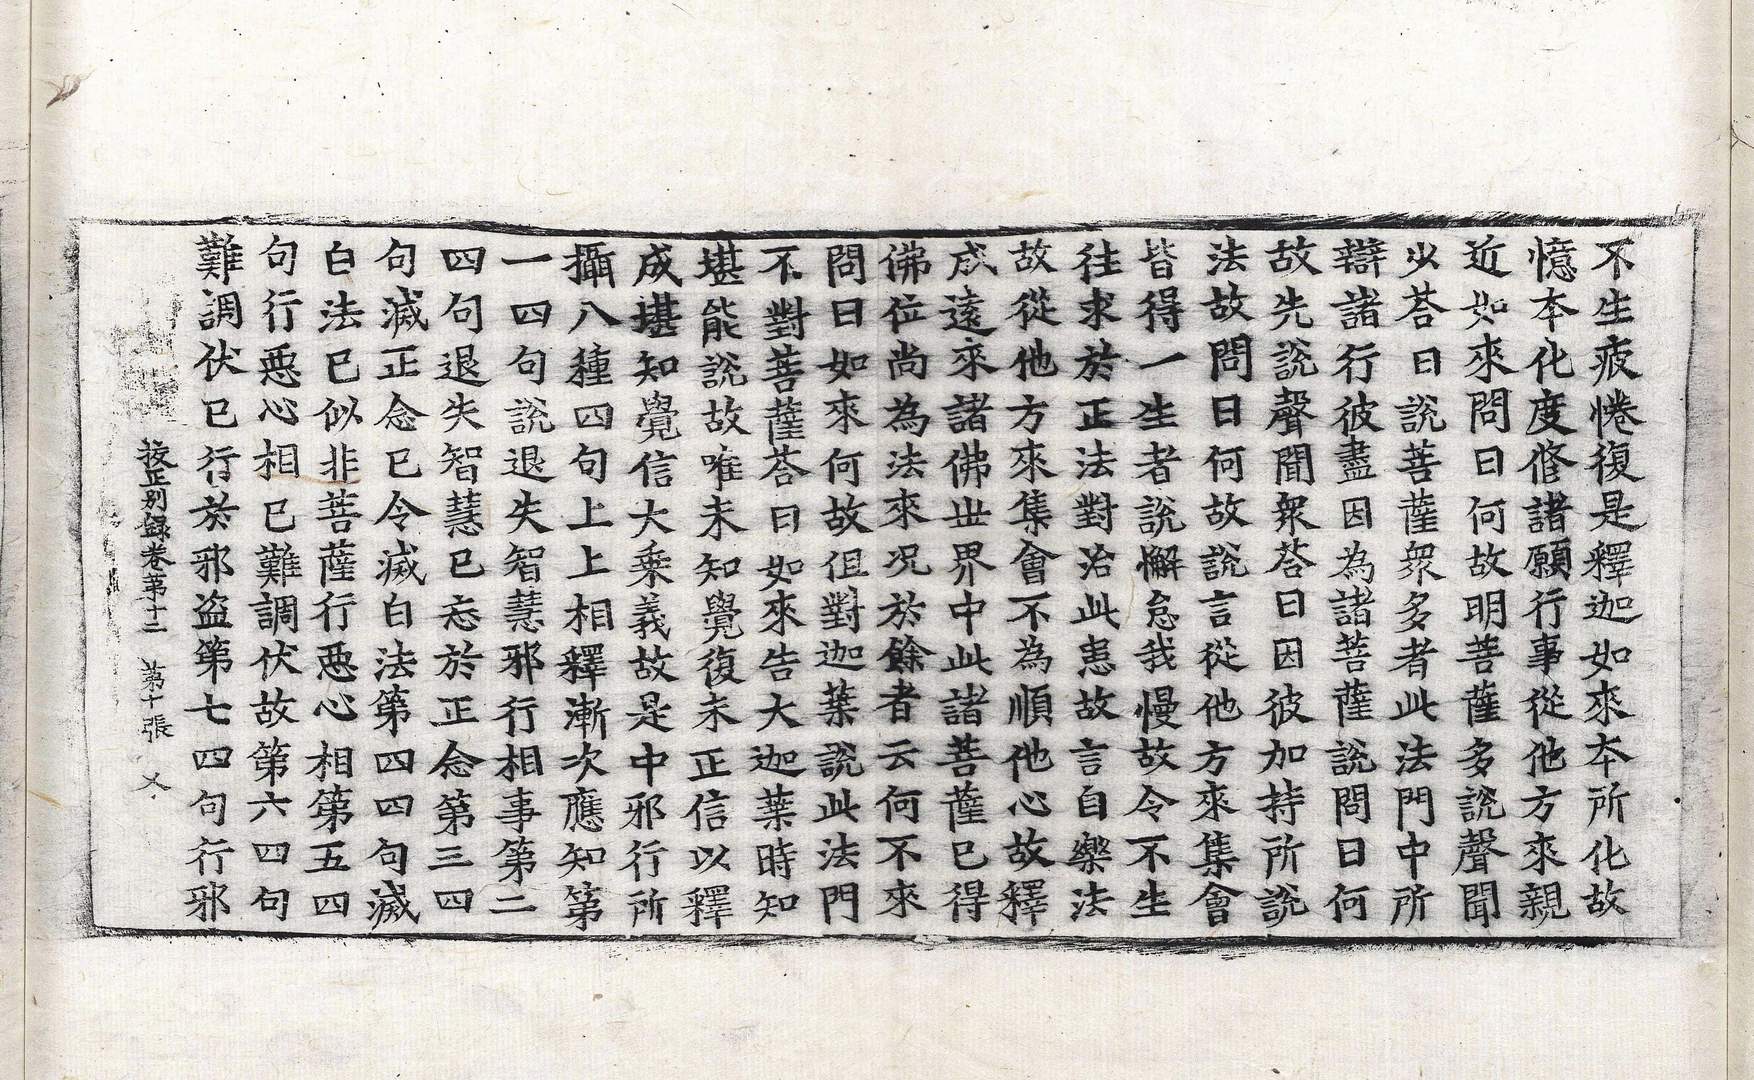 不生疲惓復是釋迦如來本所化故
憶本化度修諸願行事從他方來親
近如來問曰何故明菩薩多說聲聞
少荅曰說菩薩衆多者此法門中所
辯諸行彼盡因為諸菩薩說問曰何
故先說聲聞衆荅曰因彼加持所說
法故問曰何故說言從他方來集會
皆得一生者說懈怠我慢故令不生
往求於正法對治此患故言自樂法
故從他方來集會不為順他心故釋
成遠來諸佛世界中此諸菩薩已得
佛位尚為法來况於餘者云何不來
問曰如來何故但對迦葉說此法門
不對菩薩荅曰如來告大迦葉時知
堪能說故唯未知覺復未正信以釋
成堪知覺信大乗義故是中邪行所
攝八種四句上上相釋漸次應知第
一四句說退失智慧邪行相事第二
四句退失智慧已忘於正念第三四
句滅正念已令滅白法第四四句滅
白法已似非菩薩行惡心相第五四
句行惡心相已難調伏故第六四句
難調伏已行於邪盗第七四句行邪
挍正别録卷第十二　第十張